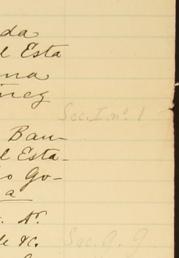 da
l Esta
na
nez
Sec. I. nº 1
Bau-
l Esta-
o Go-
a
Nº
de &c.
Sec. G. G.